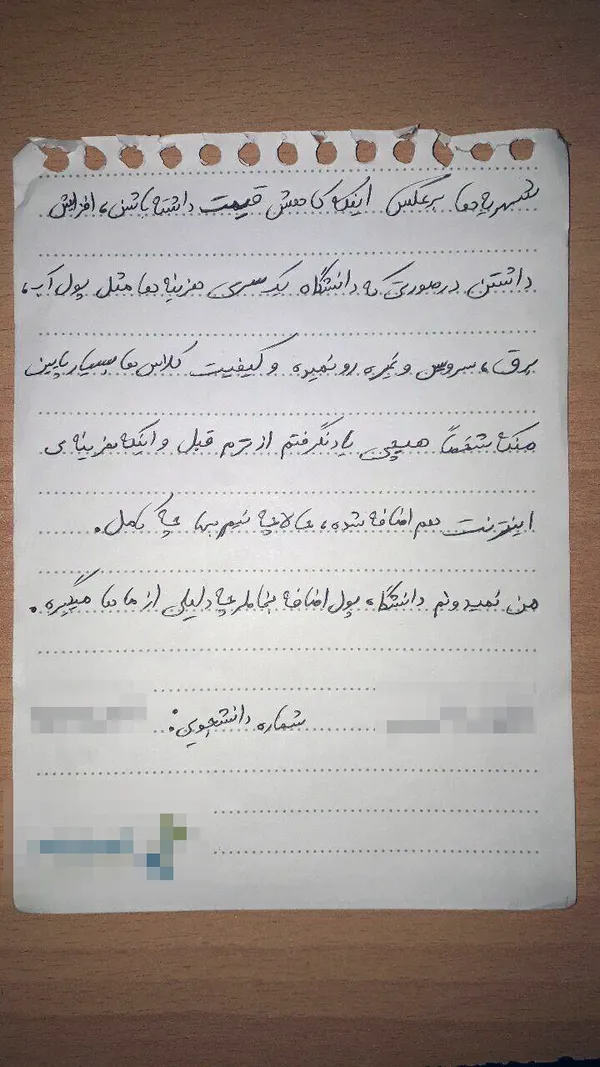 شهریه ها برعکس اینکه کاهش قیمت داشته باشن، افزایش
داشتن درصورتی که دانشگاه یک سری هزینه ها مثل پول آب،
برق، سرویس و غیره رو نمیده و کیفیت کلاس ها بسیار پایین
منکه شخصاً هیچی یاد نگرفتم از ترم قبل و اینکه هزینه ی
اینترنت هم اضافه شده، حالا چه نیم بها چه کامل.
من نمیدونم دانشگاه، پول اضافه بخاطر چه دلیلی از ما ها میگیره.
شماره دانشجویی: